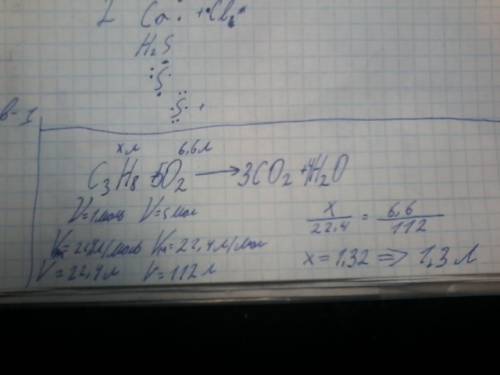 2 Ca + Cl₂
H₂S
S
S
в-I
x л 6,6 л
C₃H₈ + 5O₂ → 3CO₂ + 4H₂O
V = 1 моль V = 5 моль
Vm = 22,4 л/моль Vm = 22,4 л/моль
V = 22,4 л V = 112 л
x/22,4 = 6,6/112
x = 1,32 => 1,3 л